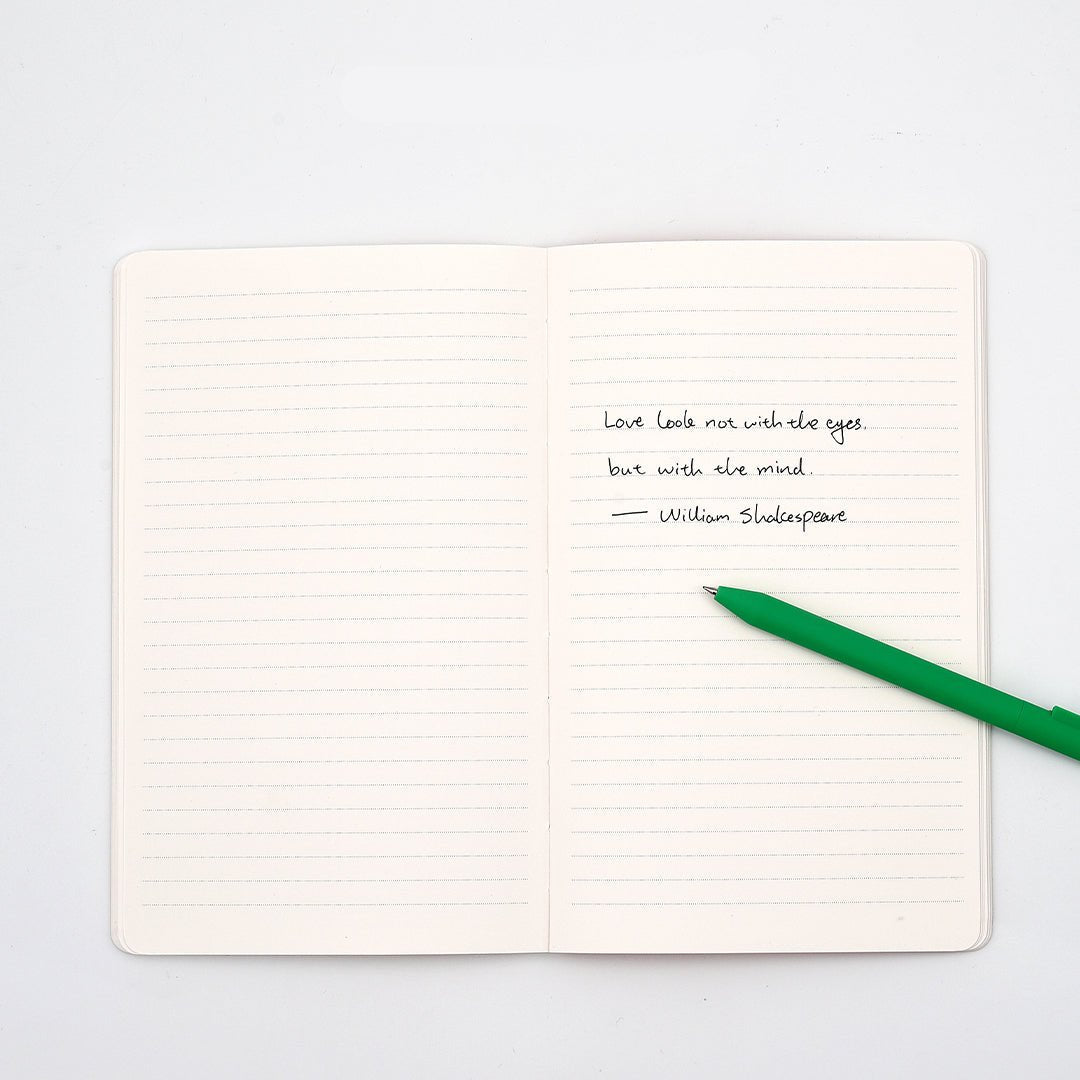 Love look not with the eyes,
but with the mind.
— William Shakespeare